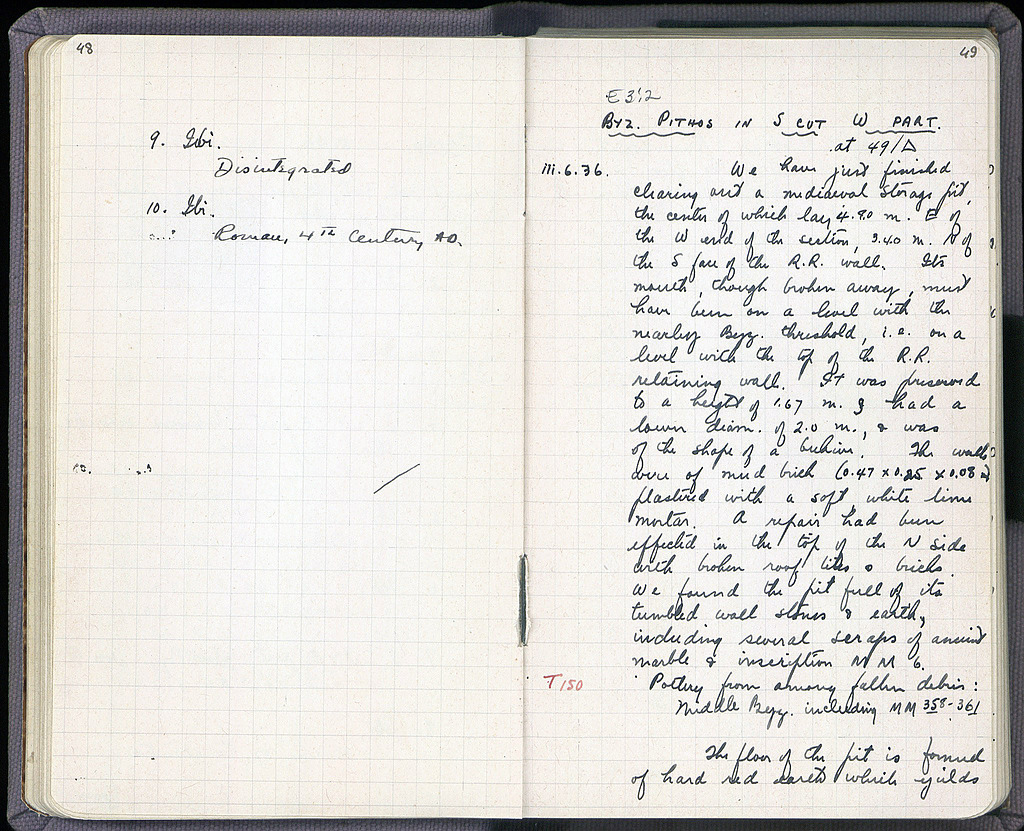 48
9. Ibi.
Disintegrated
10. Ibi.
Roman, 4TH Century, AD.
49
E 3:2
BYZ. PITHOS IN S CUT W PART.
at 49/Δ
III.6.36. We have just finished
clearing out a mediaeval storage pit,
the center of which lay 4.80 m. E of
the W end of the section, 3.40 m. N of
the S face of the R.R. wall. Its
mouth, though broken away, must
have been on a level with the
nearby Byz. threshold, i.e. on a
level with the top of the R.R.
retaining wall. It was preserved
to a height of 1.67 m. & had a
lower diam. of 2.0 m., & was
of the shape of a beehive. The walls
were of mud brick (0.47 x 0.25 x 0.08
plastered with a soft, white lime
mortar. A repair had been
effected in the top of the N side
with broken roof tiles & bricks.
We found the pit full of its
tumbled wall stones & earth,
including several scraps of ancient
marble & inscription MM 6.
T 150
Pottery from among fallen debris:
Middle Byz. including MM 358-361
The floor of the pit is formed
of hard red earth which yields